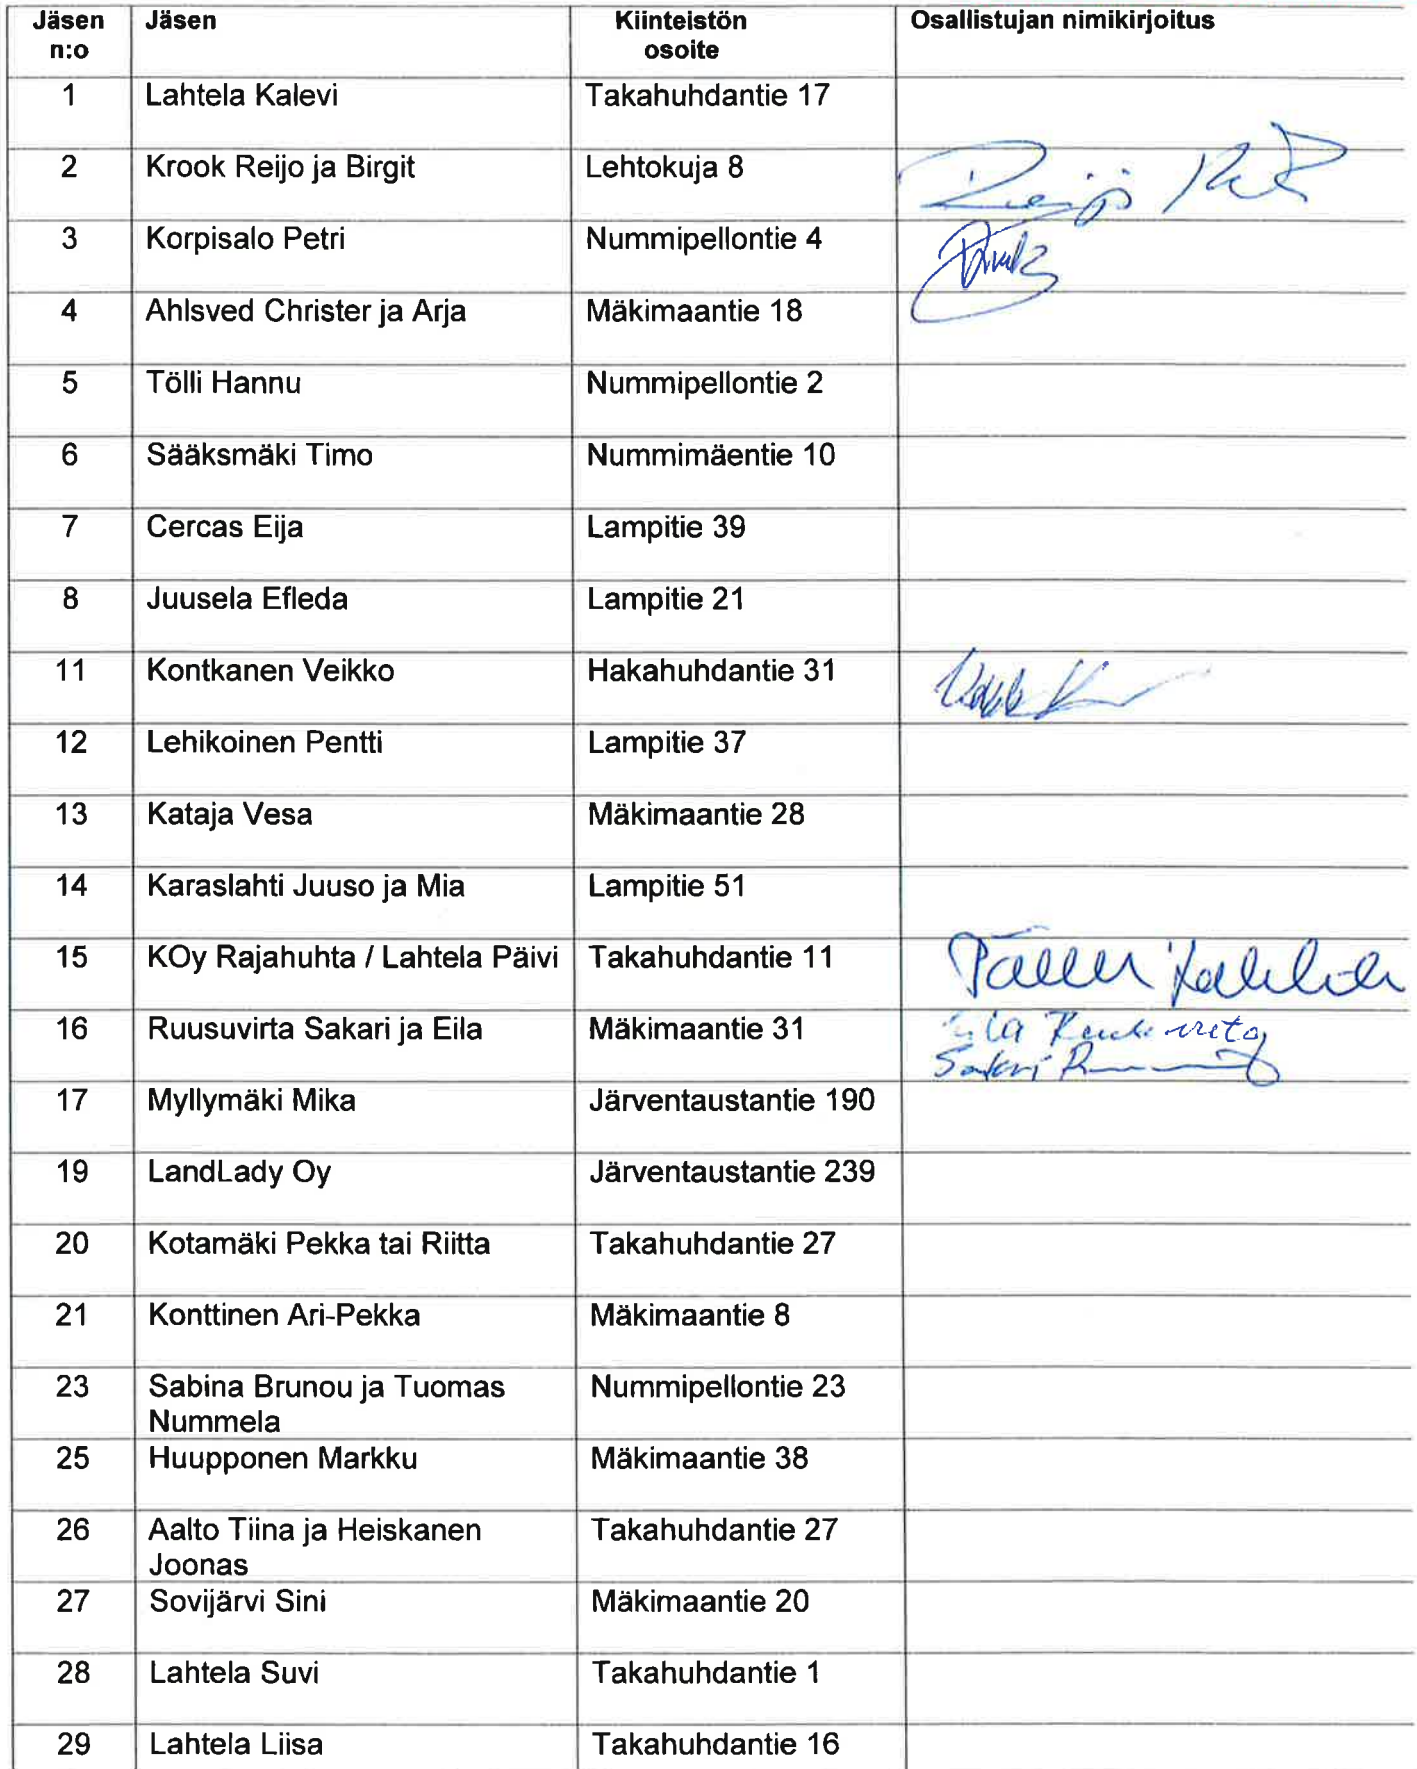 Jäsen n:o Jäsen Kiinteistön osoite Osallistujan nimikirjoitus
1 Lahtela Kalevi Takahuhdantie 17
2 Krook Reijo ja Birgit Lehtokuja 8 Reijo
3 Korpisalo Petri Nummipellontie 4
4 Ahlsved Christer ja Arja Mäkimaantie 18
5 Tölli Hannu Nummipellontie 2
6 Sääksmäki Timo Nummimäentie 10
7 Cercas Eija Lampitie 39
8 Juusela Efleda Lampitie 21
11 Kontkanen Veikko Hakahuhdantie 31
12 Lehikoinen Pentti Lampitie 37
13 Kataja Vesa Mäkimaantie 28
14 Karaslahti Juuso ja Mia Lampitie 51
15 KOy Rajahuhta / Lahtela Päivi Takahuhdantie 11
16 Ruusuvirta Sakari ja Eila Mäkimaantie 31
Sakari
17 Myllymäki Mika Järventaustantie 190
19 LandLady Oy Järventaustantie 239
20 Kotamäki Pekka tai Riitta Takahuhdantie 27
21 Konttinen Ari-Pekka Mäkimaantie 8
23 Sabina Brunou ja Tuomas Nummipellontie 23
Nummela
25 Huupponen Markku Mäkimaantie 38
26 Aalto Tiina ja Heiskanen Takahuhdantie 27
Joonas
27 Sovijärvi Sini Mäkimaantie 20
28 Lahtela Suvi Takahuhdantie 1
29 Lahtela Liisa Takahuhdantie 16